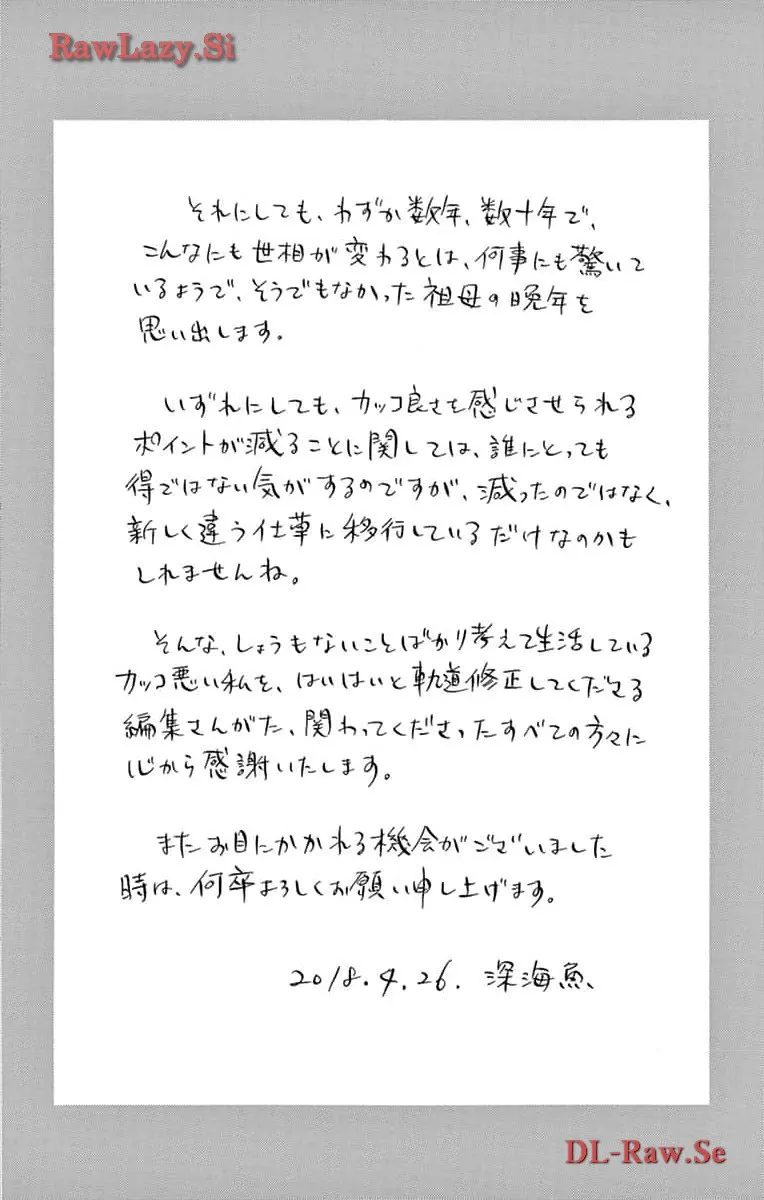 RawLazy.Si
それにしても、わずか数年、数十年で、
こんなにも世相が変わるとは、何事にも驚いて
いるようで、そうでもなかった祖母の晩年を
思い出します。
いずれにしても、カッコ良さを感じさせられる
ポイントが減ることに関しては、誰にとっても
得ではない気がするのですが、減ったのではなく、
新しく違う仕草に移行しているだけなのかも
しれませんね。
そんな、しょうもないことばかり考えて生活している
カッコ悪い私を、はいはいと軌道修正してくださる
編集さんがた、関わってくださったすべての方々に
心から感謝いたします。
またお目にかかれる機会がございました
時は、何卒よろしくお願い申し上げます。
2018.4.26. 深海魚
DL-Raw.Se